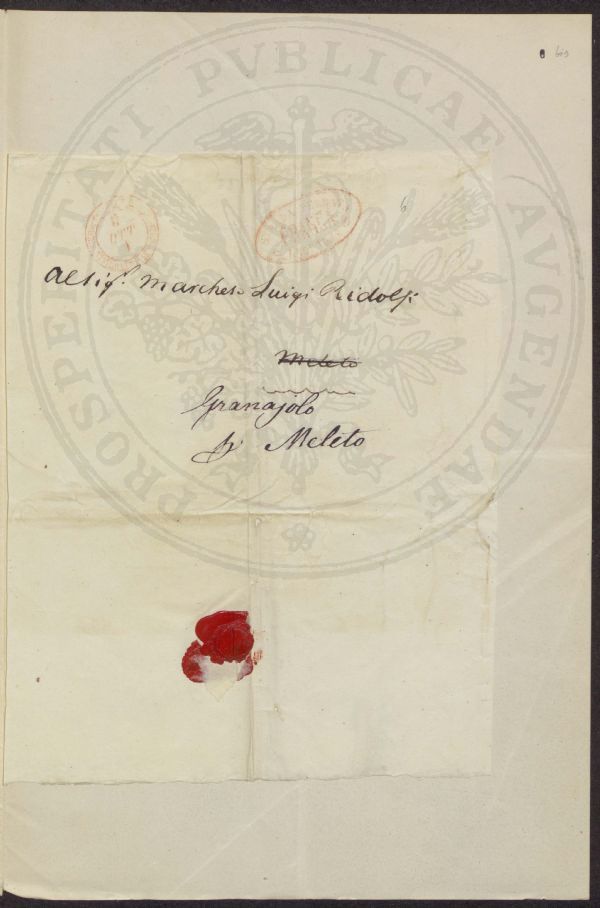 bis
PROSPERITATI PVBLICAE AVGENDAE
6
OTT
6
Al Sig.r Marchese Luigi Ridolfi
Meleto
Granajolo
p Meleto